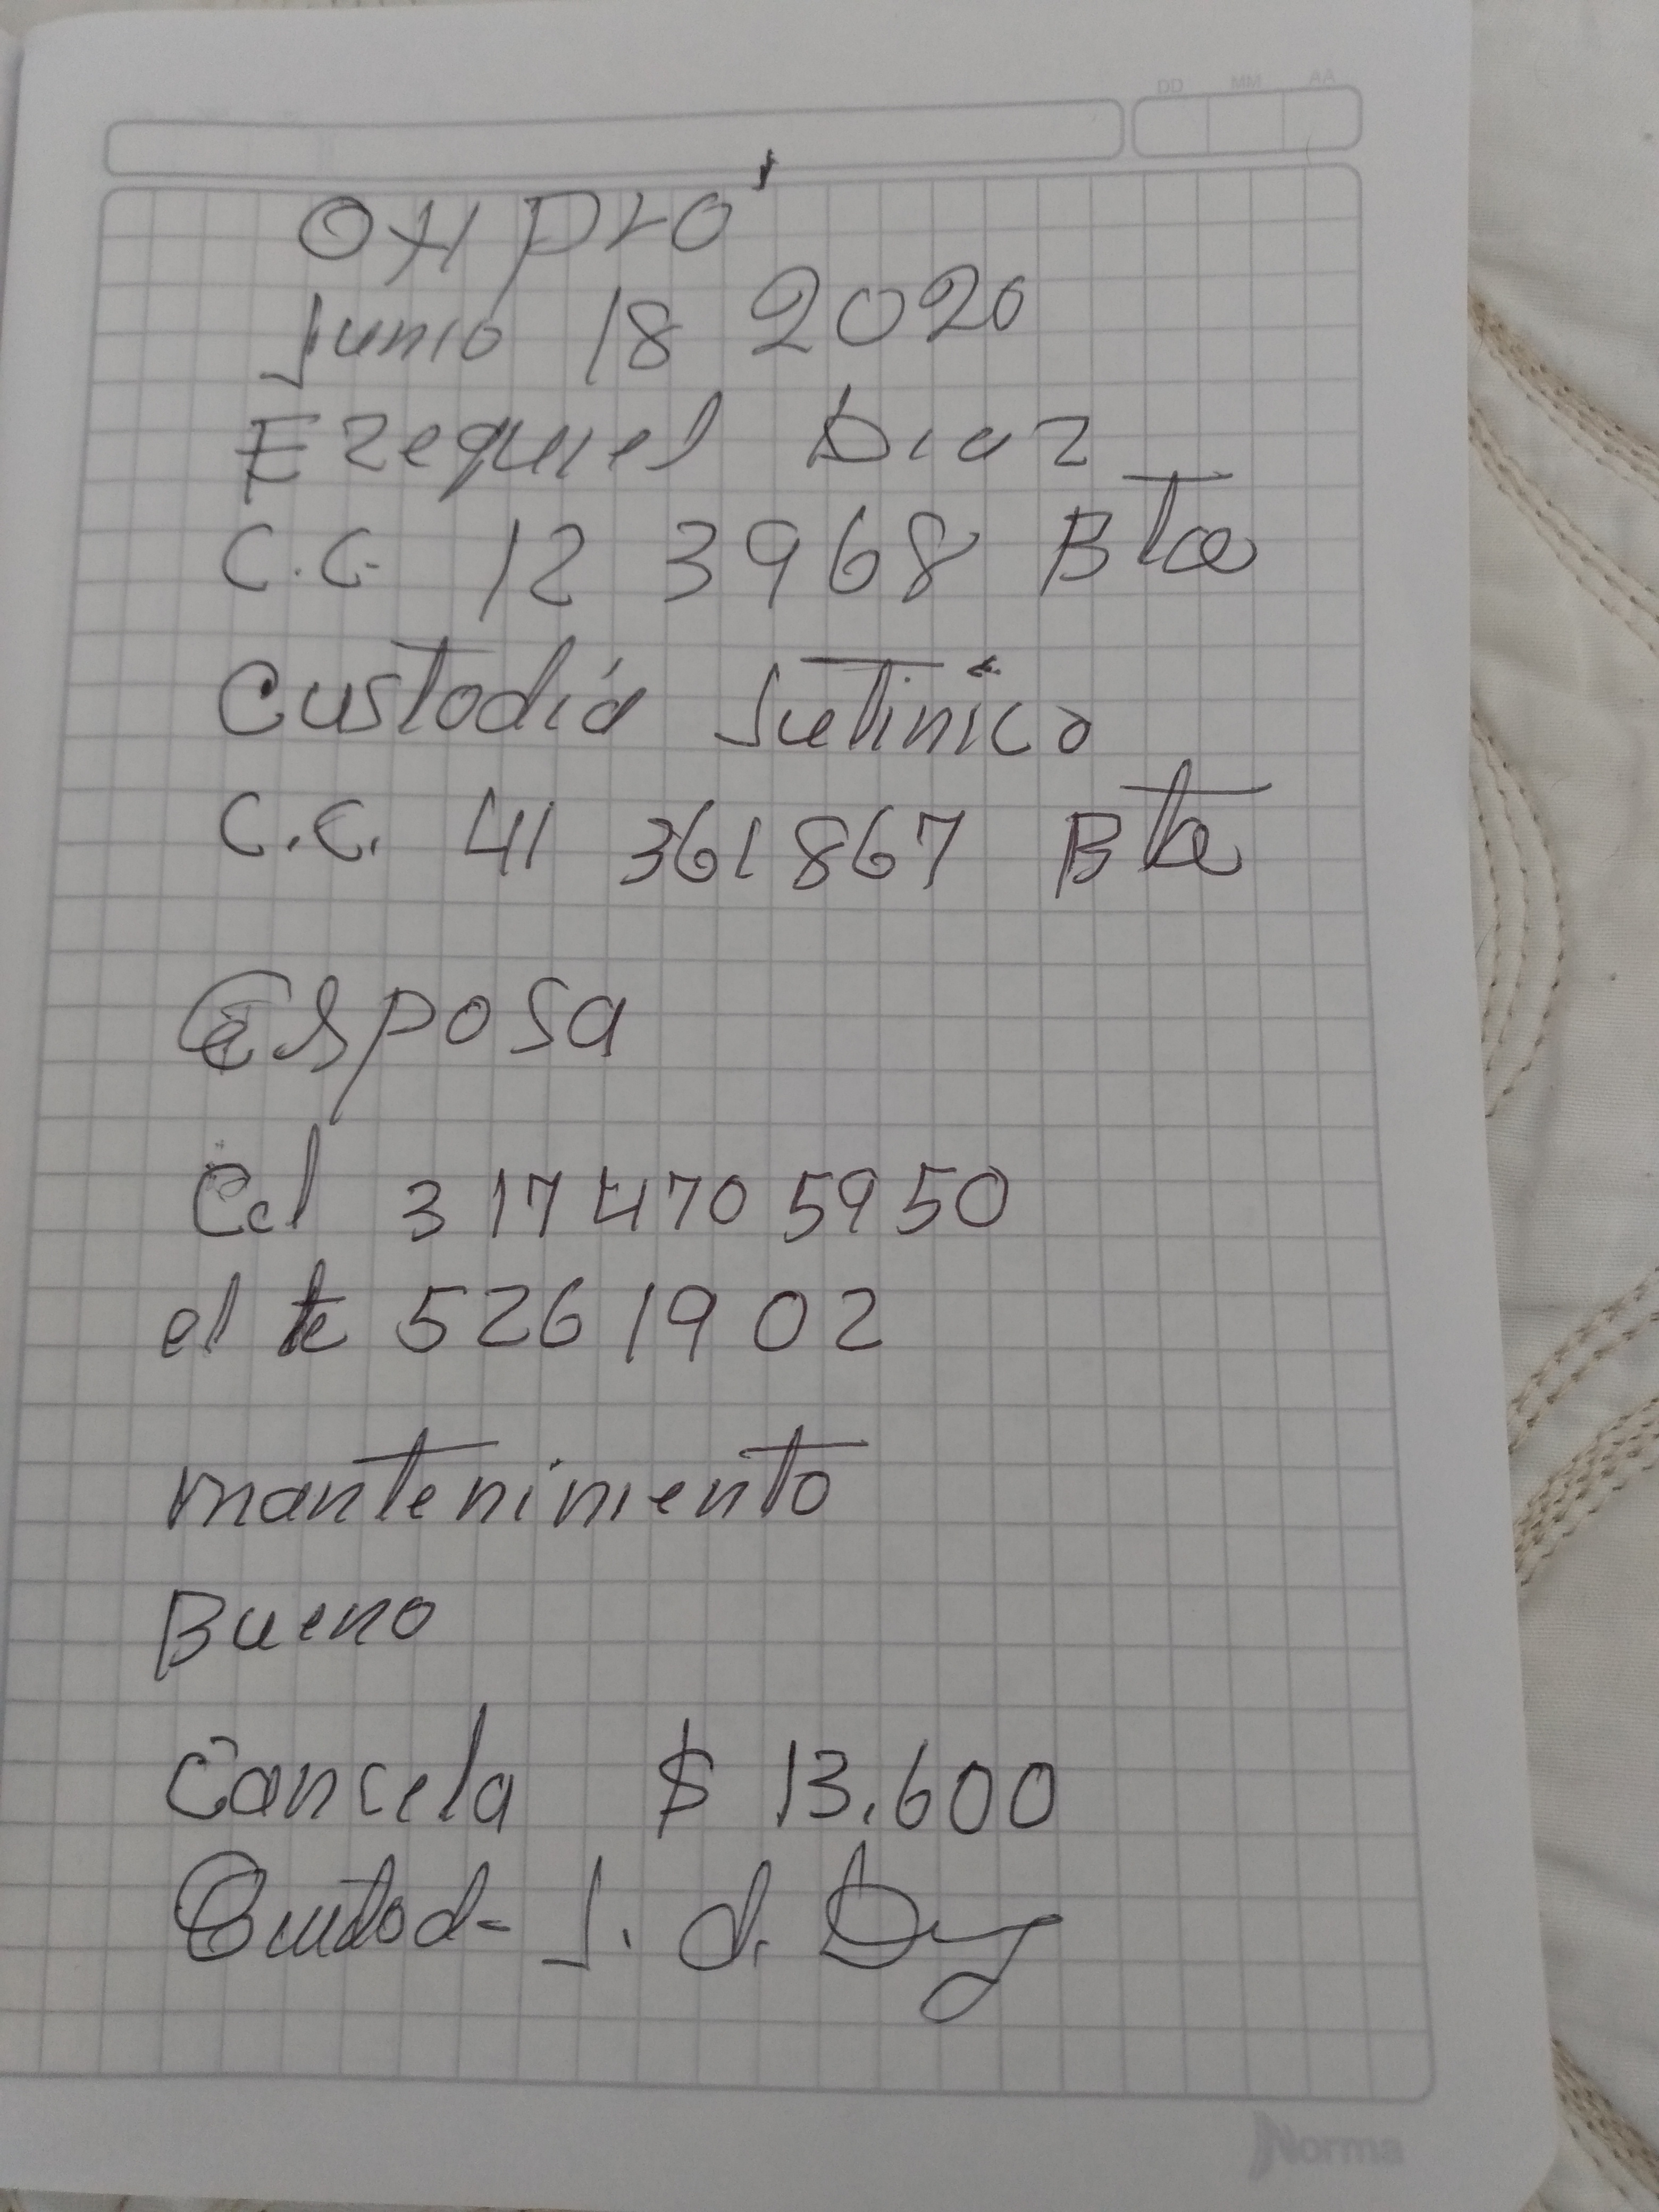 DD MM AA
Oxi pro
Junio 18 2020
Ezequiel Diaz
C.C. 12 3968 Bta
Custodia Sutinico
C.C. 41 361867 Bta
Esposa
Cel 317 470 5950
el te 526 19 02
mantenimiento
Bueno
Cancela $ 13.600
Custod- S. d.
Norma